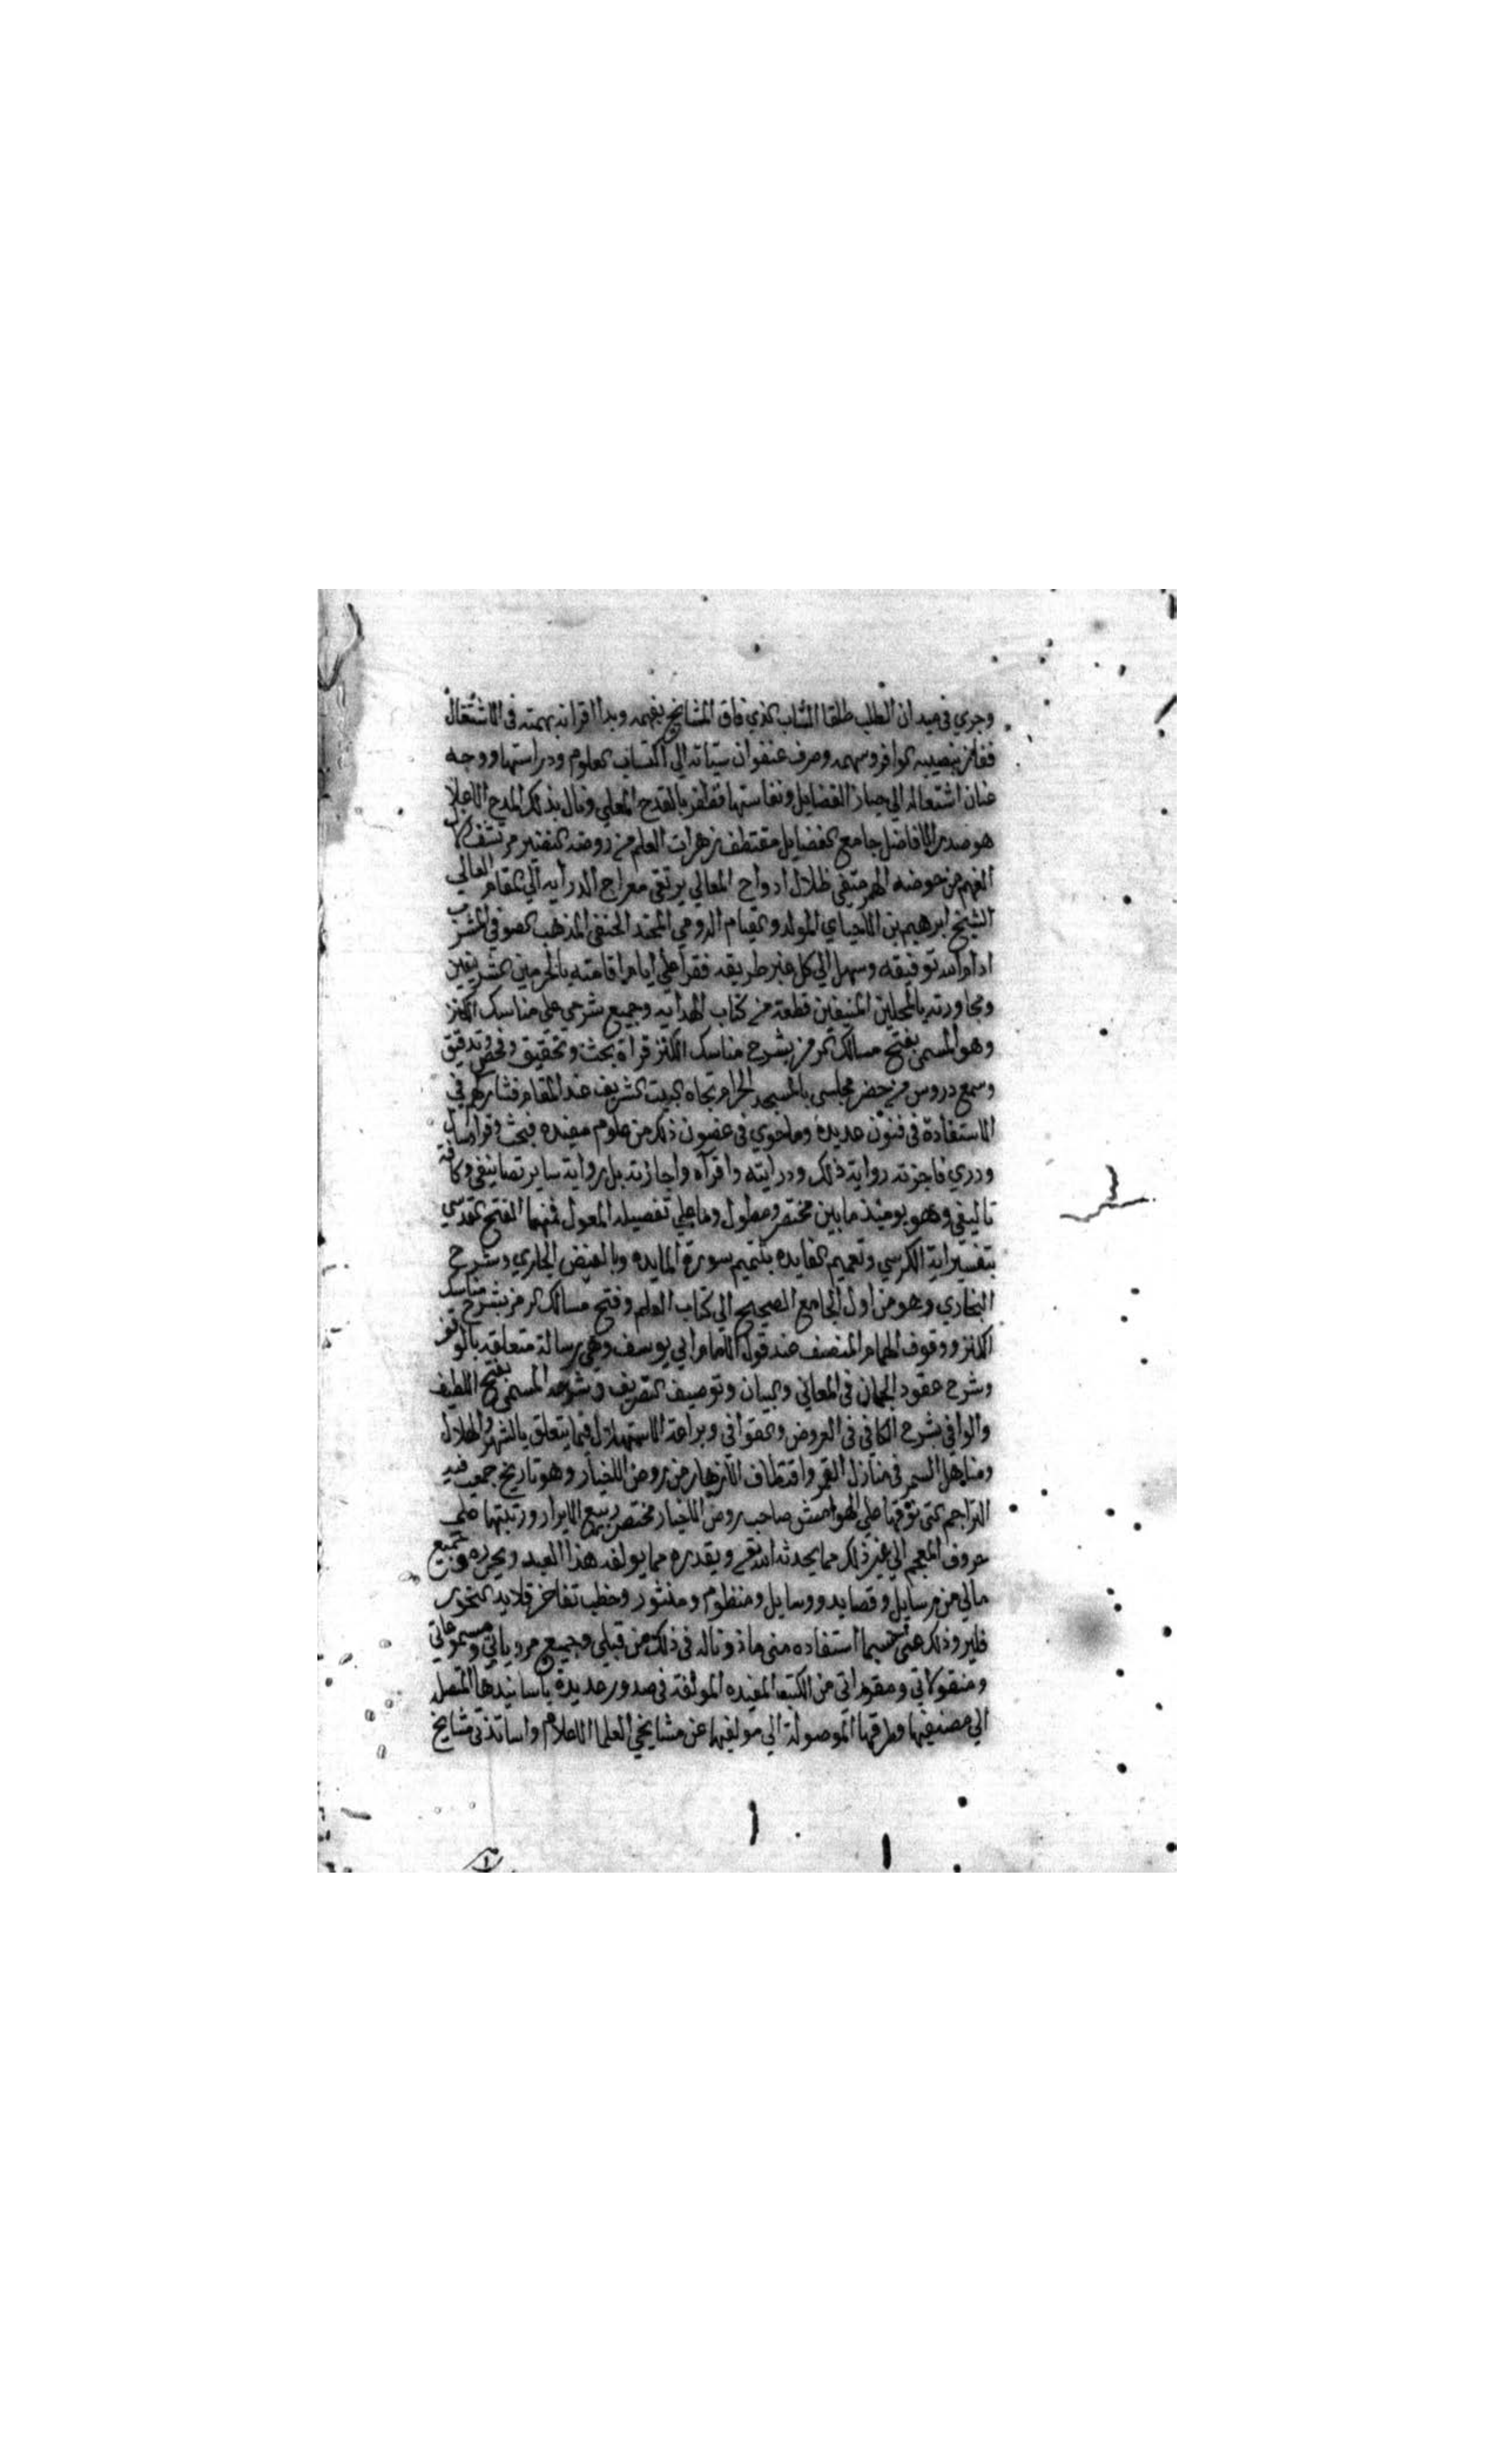 وجري في ميدان الطلب طلقا الشاب الذي فاق المشايخ بفهمه وبدا اقرانه بهمته في الاشتغال
ففاز بنصيبه الوافر وسهمه وصرف عنفوان شبابه الي اكتساب العلوم ودراستها ووجه
عنان اشتغاله الي حياز الفضايل ونفاستها فظفر بالقدح المعلي ونال بذلك المدح الاعلا
هو صدر الافاضل جامع الفضايل مقتطف زهرات العلم من روضه مرتشف
الفهم من حوضه متفي ظلال ادواح المعالي يرتقي معراج الدرايه الي المقام العالي
الشيخ ابرهيم بن المولد والقيام الرومي المحتد الحنفي المذهب الصوفي المشرب
ادام الله توفيقه وسهل الي كل طريقه فقرا علي ايام اقامته بالحرمين الشريفين
ومجاورته بالمحلين المنيفين قطعة من كتاب الهدايه وجميع شرحي علي مناسك الكنز
وهو المسمي بفتح مسالك الرمز بشرح مناسك الكنز قراة بحث وتحقيق وفحص وتدقيق
وسمع دروس من حضر مجلسي بالمسجد الحرام تجاه البيت الشريف عند المقام فشاركهم في
الاستفادة في فنون عديدة وما حوي في غضون ذلك من علوم مفيده فبحث وقرا وسال
ودري فاجزته رواية ذلك ودرايته واقرآه واجازته بل رواية ساير تصانيفي وكافة
تاليفي وهو يوميذ ما بين مختصر ومطول وما علي تفصيله المعول فمنها الفتح القدسي
بتفسير اية الكرسي وتعميم الفايده بتتميم سورة المايده وبالفيض الجاري وشرح
البخاري وهو من اول الجامع الصحيح الي كتاب العلم وفتح مسالك الرمز بشرح مناسك
الكنز ووقوف الهمام المنصف عند قول الامام ابي يوسف وهي رسالة متعلقه بالوقف
وشرح عقود الجمان في المعاني والبيان وتوصيف التصريف وشرحه المسمي بفتح اللطيف
والوافي بشرح الكافي في العروض والقوافي وبراعة الاستهلال فيما يتعلق بالشهر والهلال
ومناهل السمر في منازل القمر واقتطاف الازهار من روض الاخبار وهو تاريخ جمعت فيه
التراجم التي علي الهوامش صاحب روض الاخبار مختصر ربيع الابرار ورتبتها علي
حروف المعجم الي غير ذلك مما يحدثه الله تعالي ويقدره مما يولفه هذا العبد ويحرره وجميع
مالي من رسايل وقصايد ووسايل ومنظوم ومنثور وخطب تفاخر قلايد النحور
فليرو ذلك عني حسبما استفاده مني ماذونا له في ذلك من قبلي وجميع مروياتي ومسموعاتي
ومنقولاتي ومقرواتي من الكتب المفيده المولفة في صدور عديدة باسانيدها المتصله
الي مصنفيها وطرقها الموصولة الي مولفيها عن مشايخي العلما الاعلام واساتذتي مشايخ